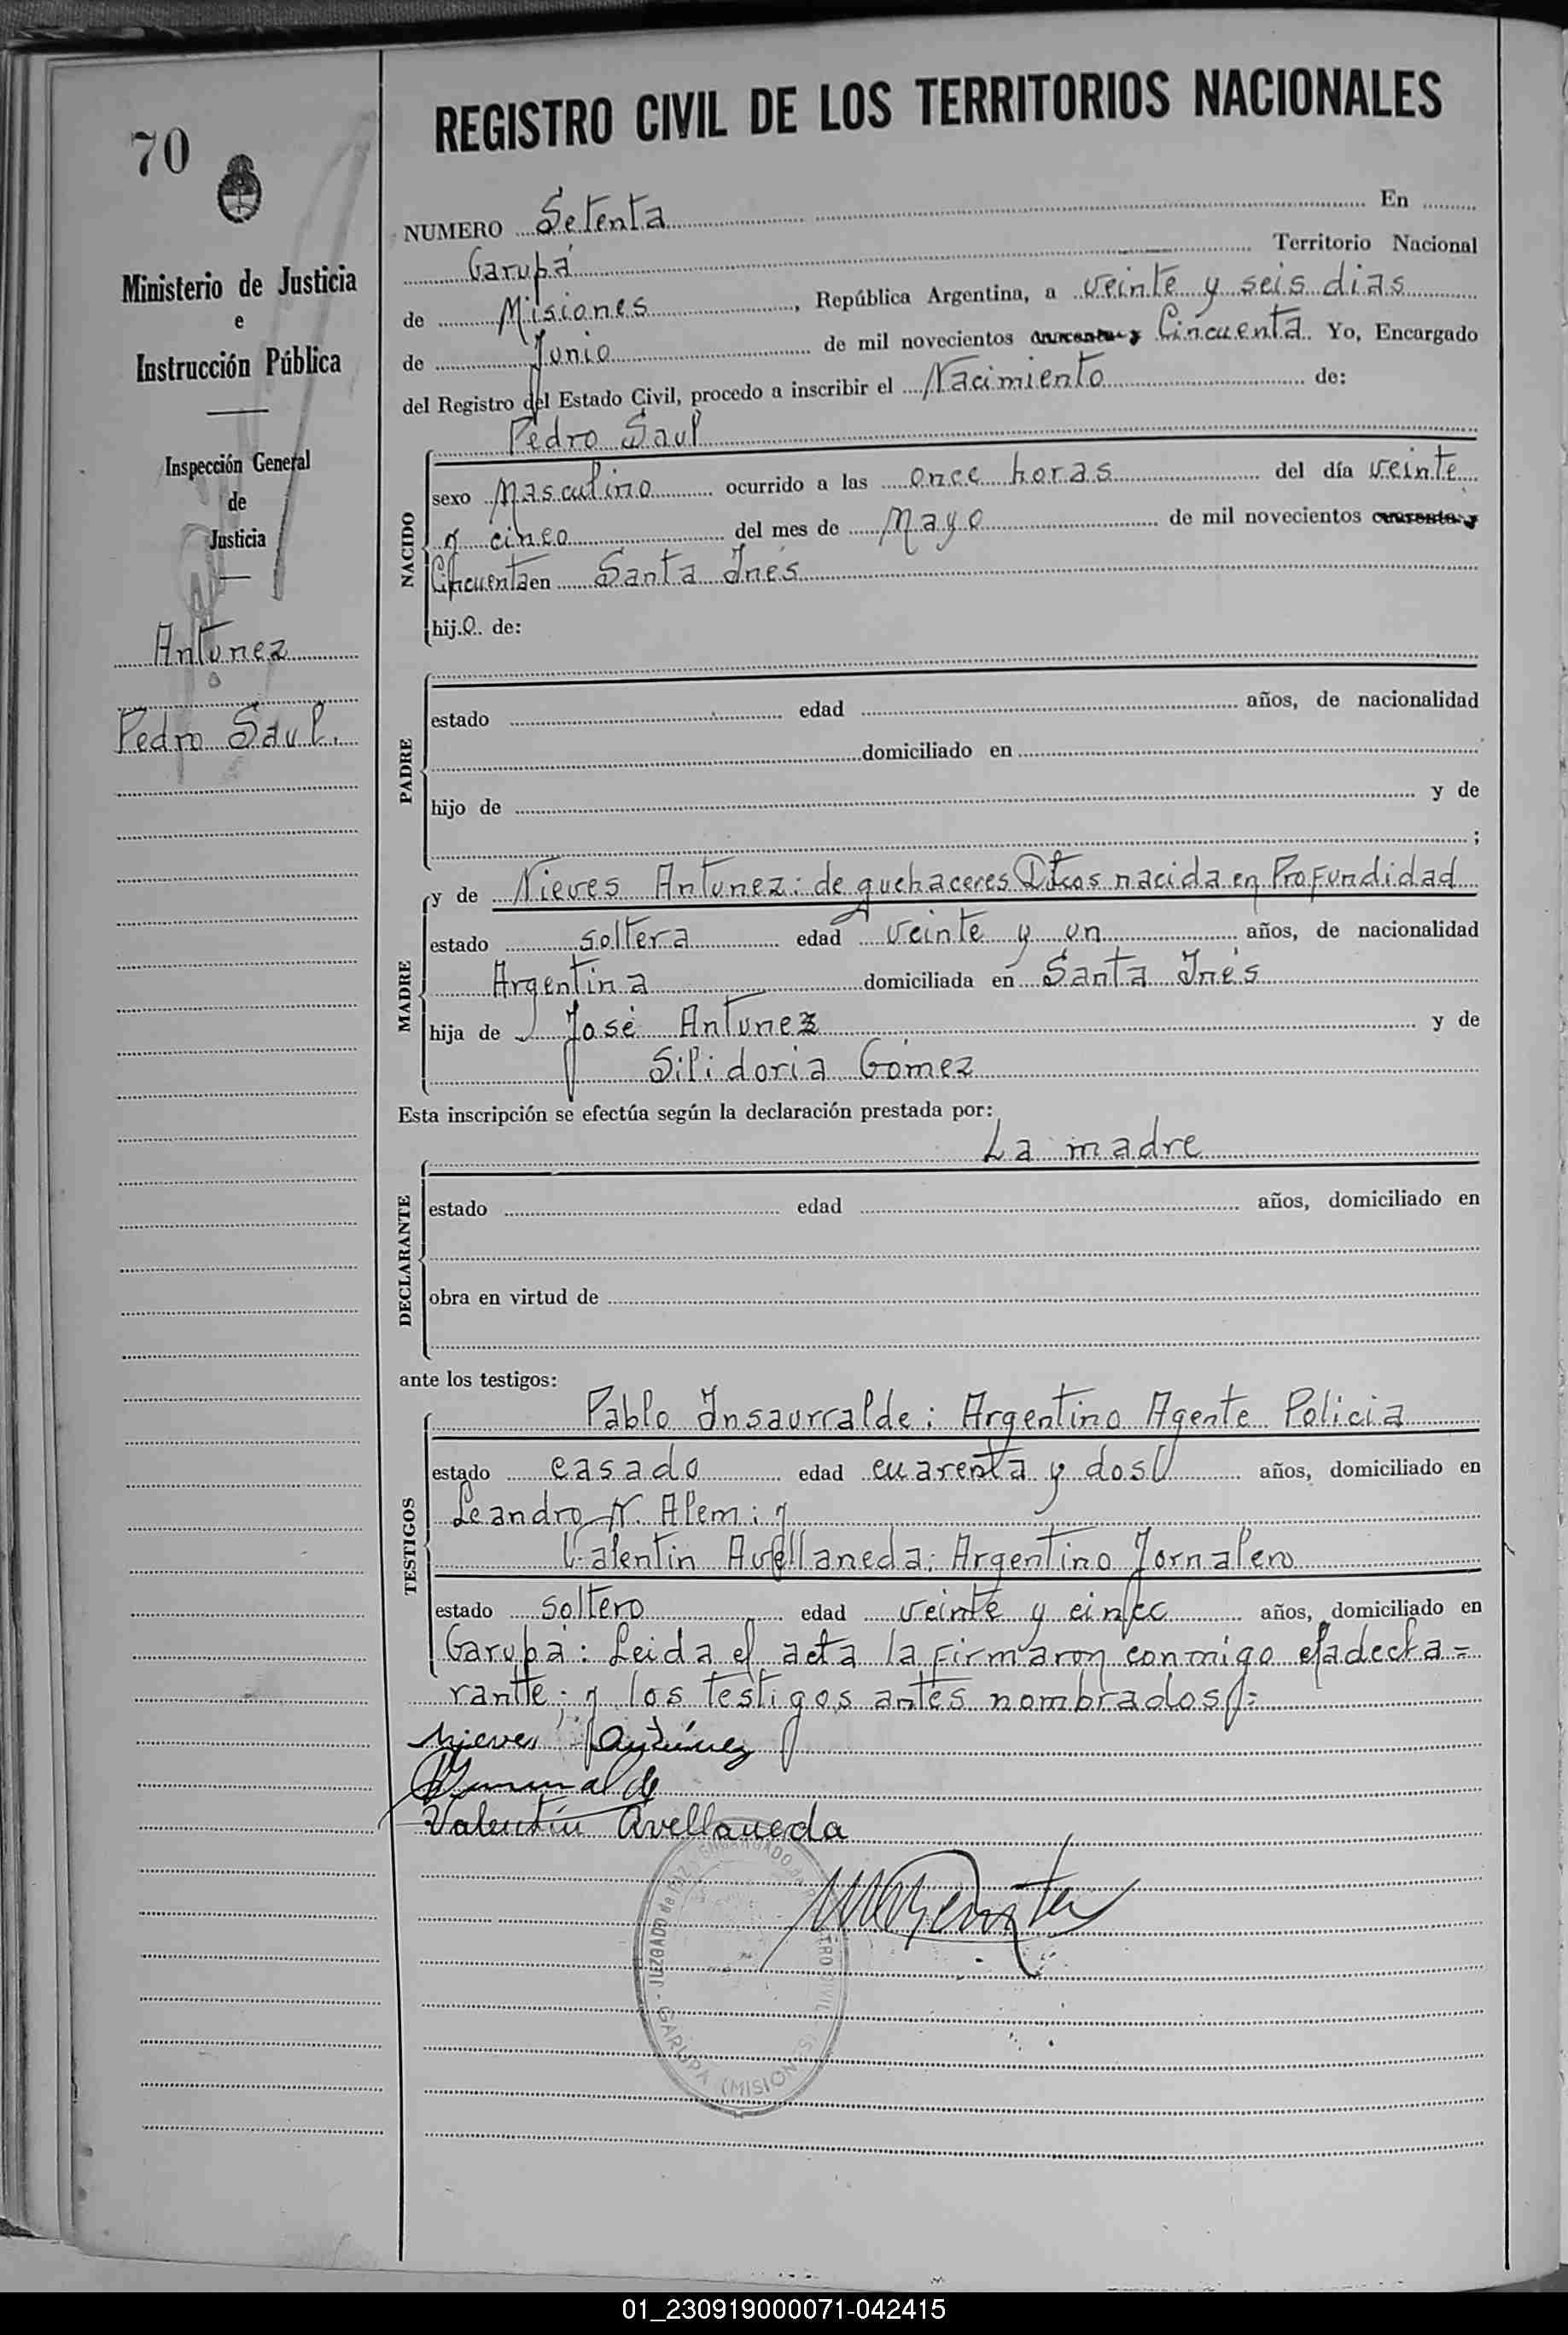 70
Ministerio de Justicia
e
Instrucción Pública
Inspección General
de
Justicia
Antunez
Pedro Saul.
REGISTRO CIVIL DE LOS TERRITORIOS NACIONALES
NUMERO Setenta En
Garupá Territorio Nacional
de Misiones, República Argentina, a veinte y seis dias
de Junio de mil novecientos cuarenta y Cincuenta. Yo, Encargado
del Registro del Estado Civil, procedo a inscribir el Nacimiento de:
Pedro Saul
NACIDO
sexo Masculino ocurrido a las once horas del día veinte
y cinco del mes de Mayo de mil novecientos cuarenta y
Cincuenta en Santa Inés
hijo de:
PADRE
estado edad años, de nacionalidad
domiciliado en
hijo de y de
;
MADRE
y de Nieves Antunez: de quehaceres Dtcos nacida en Profundidad
estado soltera edad veinte y un años, de nacionalidad
Argentina domiciliada en Santa Inés
hija de José Antunez y de
Silidoria Gomez
Esta inscripción se efectúa según la declaración prestada por:
La madre
DECLARANTE
estado edad años, domiciliado en
obra en virtud de
ante los testigos:
TESTIGOS
Pablo Insaurralde: Argentino Agente Policia
estado casado edad cuarenta y dos años, domiciliado en
Leandro N. Alem: y
Valentin Avellaneda: Argentino Jornalero
estado soltero edad veinte y cinco años, domiciliado en
Garupá: Leida el acta la firmaron conmigo la decla=
rante; y los testigos antes nombrados=
Nieves Antúnez
Valentín Avellaneda
JUZGADO de PAZ ENCARGADO REGISTRO CIVIL
GARUPA (MISIONES)
01_230919000071-042415